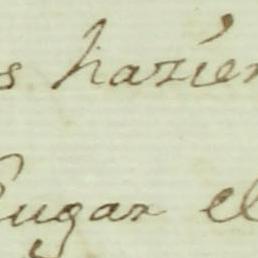 s hazien
Lugar el